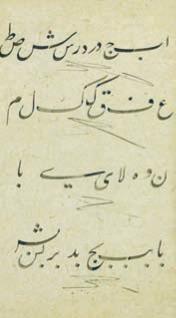 ا ب ج د ر د ر س ش ص ط
ع ف ق ک ل م
ن و ه لا ی ے با
با بب بج بد بر